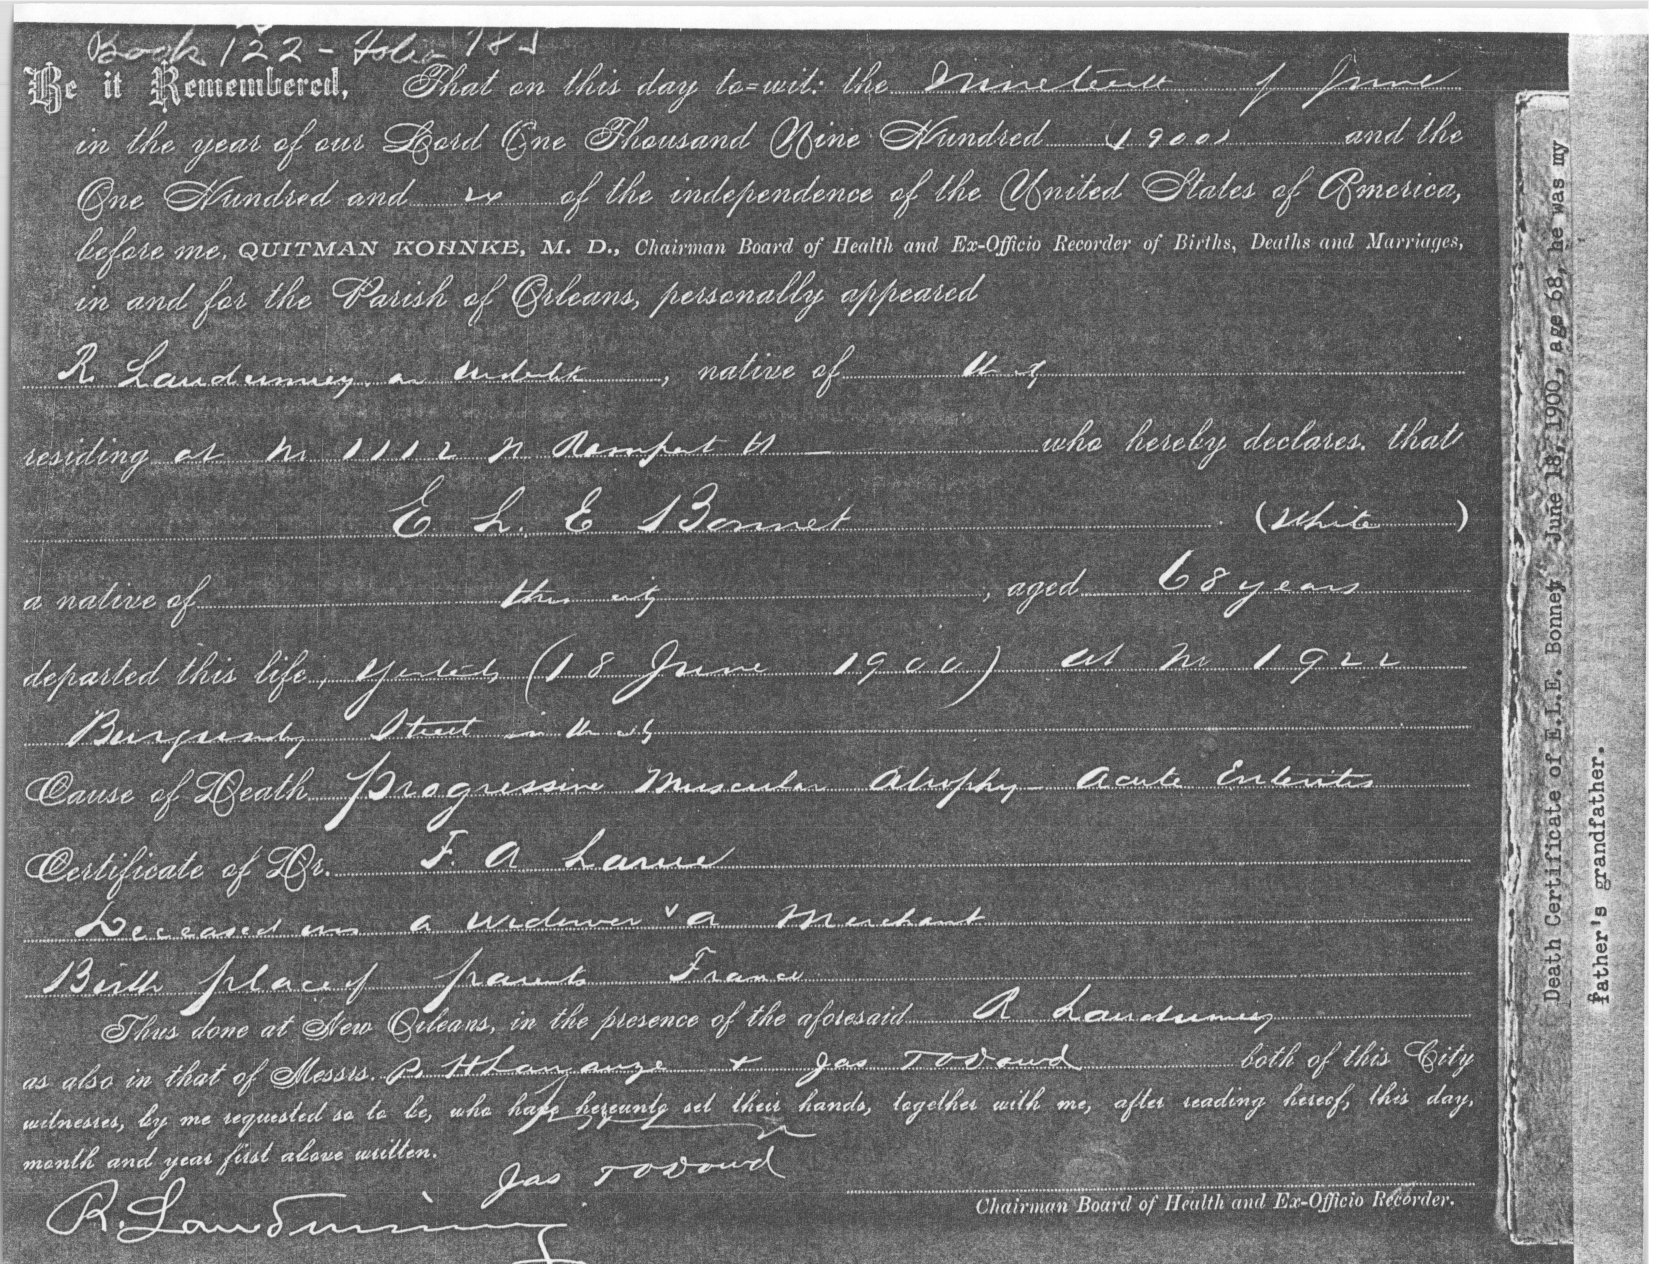 Book 122 - Folio 785
Be it Remembered, That on this day to=wit: the Nineteenth of June
in the year of our Lord One Thousand Nine Hundred (1900) and the
One Hundred and 24 of the independence of the United States of America,
before me, QUITMAN KOHNKE, M. D., Chairman Board of Health and Ex-Officio Recorder of Births, Deaths and Marriages,
in and for the Parish of Orleans, personally appeared
R. Laudumiey, an undertk, native of
residing at No 1112 N Rampart St who hereby declares. that
E. L. E Bonnet (White)
a native of this city, aged 68 years
departed this life, Yesterday (18 June 1900) at No 1922
Burgundy Street in this city
Cause of Death Progressive Muscular Atrophy - Acute Enteritis
Certificate of Dr. F. A Larue
Deceased was a widower & a Merchant
Birth place of parents France
Thus done at New Orleans, in the presence of the aforesaid R Laudumiey
as also in that of Messrs. P. H Lanauze + Jas T O'Dowd both of this City
witnesses, by me requested so to be, who have hereunto set their hands, together with me, after reading hereof, this day,
month and year first above written.
Jas T O'Dowd
R. Laudumiey
Chairman Board of Health and Ex-Officio Recorder.
Death Certificate of E.L.E. Bonney June 18, 1900, age 68, he was my
father's grandfather.